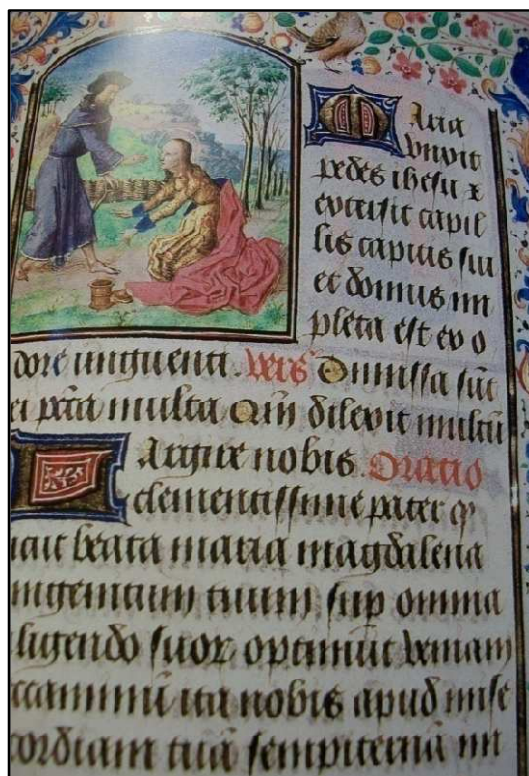 Maria
vnxit
pedes ihesu x
extersit capil
lis capitis sui
et domus im
pleta est ex o
dore unguenti. Vers Dimissa sūt
ei pctā multa Qm̄ dilexit multū
Largire nobis Oratio
clementissime pater q
beata maria magdalena
tuum sup omnia
ligendo suor optinuit veniam
ccaminū ita nobis apud mise
cordiam tuā sempiternā im